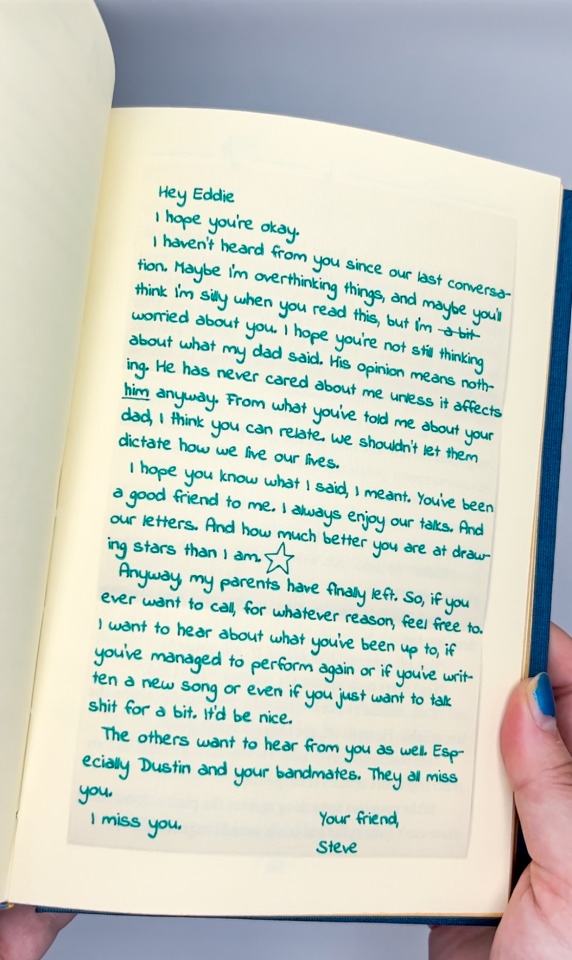 Hey Eddie
I hope you're okay.
I haven't heard from you since our last conversa-
tion. Maybe I'm overthinking things, and maybe you'll
think I'm silly when you read this, but I'm a bit
worried about you. I hope you're not still thinking
about what my dad said. His opinion means noth-
ing. He has never cared about me unless it affects
him anyway. From what you've told me about your
dad, I think you can relate. We shouldn't let them
dictate how we live our lives.
I hope you know what I said, I meant. You've been
a good friend to me. I always enjoy our talks. And
our letters. And how much better you are at draw-
ing stars than I am.
Anyway, my parents have finally left. So, if you
ever want to call, for whatever reason, feel free to.
I want to hear about what you've been up to, if
you've managed to perform again or if you've writ-
ten a new song or even if you just want to talk
shit for a bit. It'd be nice.
The others want to hear from you as well. Esp-
ecially Dustin and your bandmates. They all miss
you.
I miss you.
Your friend,
Steve